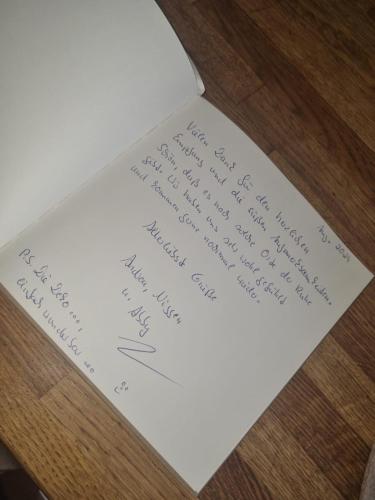 Aug. 2024
Vielen Dank für den herzlichen
Empfang und die süßen Aufmerksamkeiten.
Schön, daß es noch solche Orte der Ruhe
gibt. Wir haben uns sehr wohl gefühlt
und kommen gerne nochmal wieder.
Allerliebst Grüße
Nissen
u. Abby
P.S. Die Deko ...,
einfach wunderbar ...